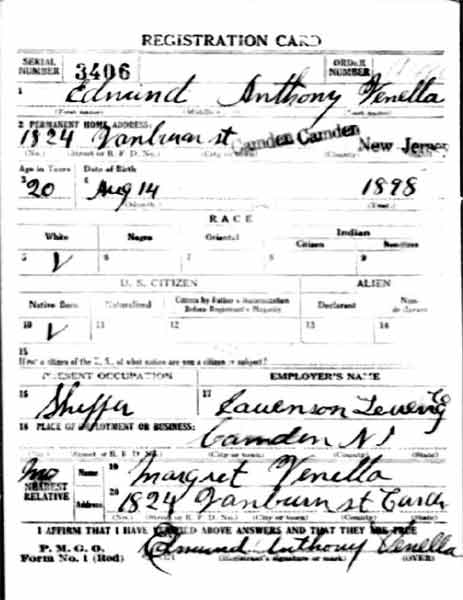 REGISTRATION CARD
SERIAL NUMBER 3406 ORDER NUMBER
1 Edmund Anthony Venella
(First name) (Middle) (Last name)
2 PERMANENT HOME ADDRESS:
1824 Vanburn st Camden Camden New Jersey
(No.) (Street or R. F. D. No.) (City or town) (County) (State)
Age in Years Date of Birth
3 20 4 Aug 14 1898
(Month) (Year)
RACE
White Negro Oriental Indian
Citizen
5 V 6 7 8 9
U. S. CITIZEN ALIEN
Native Born Naturalized Citizen by Father's Naturalization Before Registrant's Majority Declarant Non-declarant
10 V 11 12 13 14
15
If not a citizen of the U. S., of what nation are you a citizen or subject?
PRESENT OCCUPATION EMPLOYER'S NAME
16 17
18 PLACE OF EMPLOYMENT OR BUSINESS:
Camden NJ
(No.) (Street or R. F. D. No.) (City or town) (County) (State)
NEAREST RELATIVE Name 19 Margret Venella
Address 20 1824 Vanburn st
(No.) (Street or R. F. D. No.) (City or town) (County) (State)
I AFFIRM THAT I HAVE VERIFIED ABOVE ANSWERS AND THAT THEY ARE TRUE
P. M. G. O.
Form No. 1 (Red) Edmund Anthony Venella
(Registrant's signature or mark) (OVER)